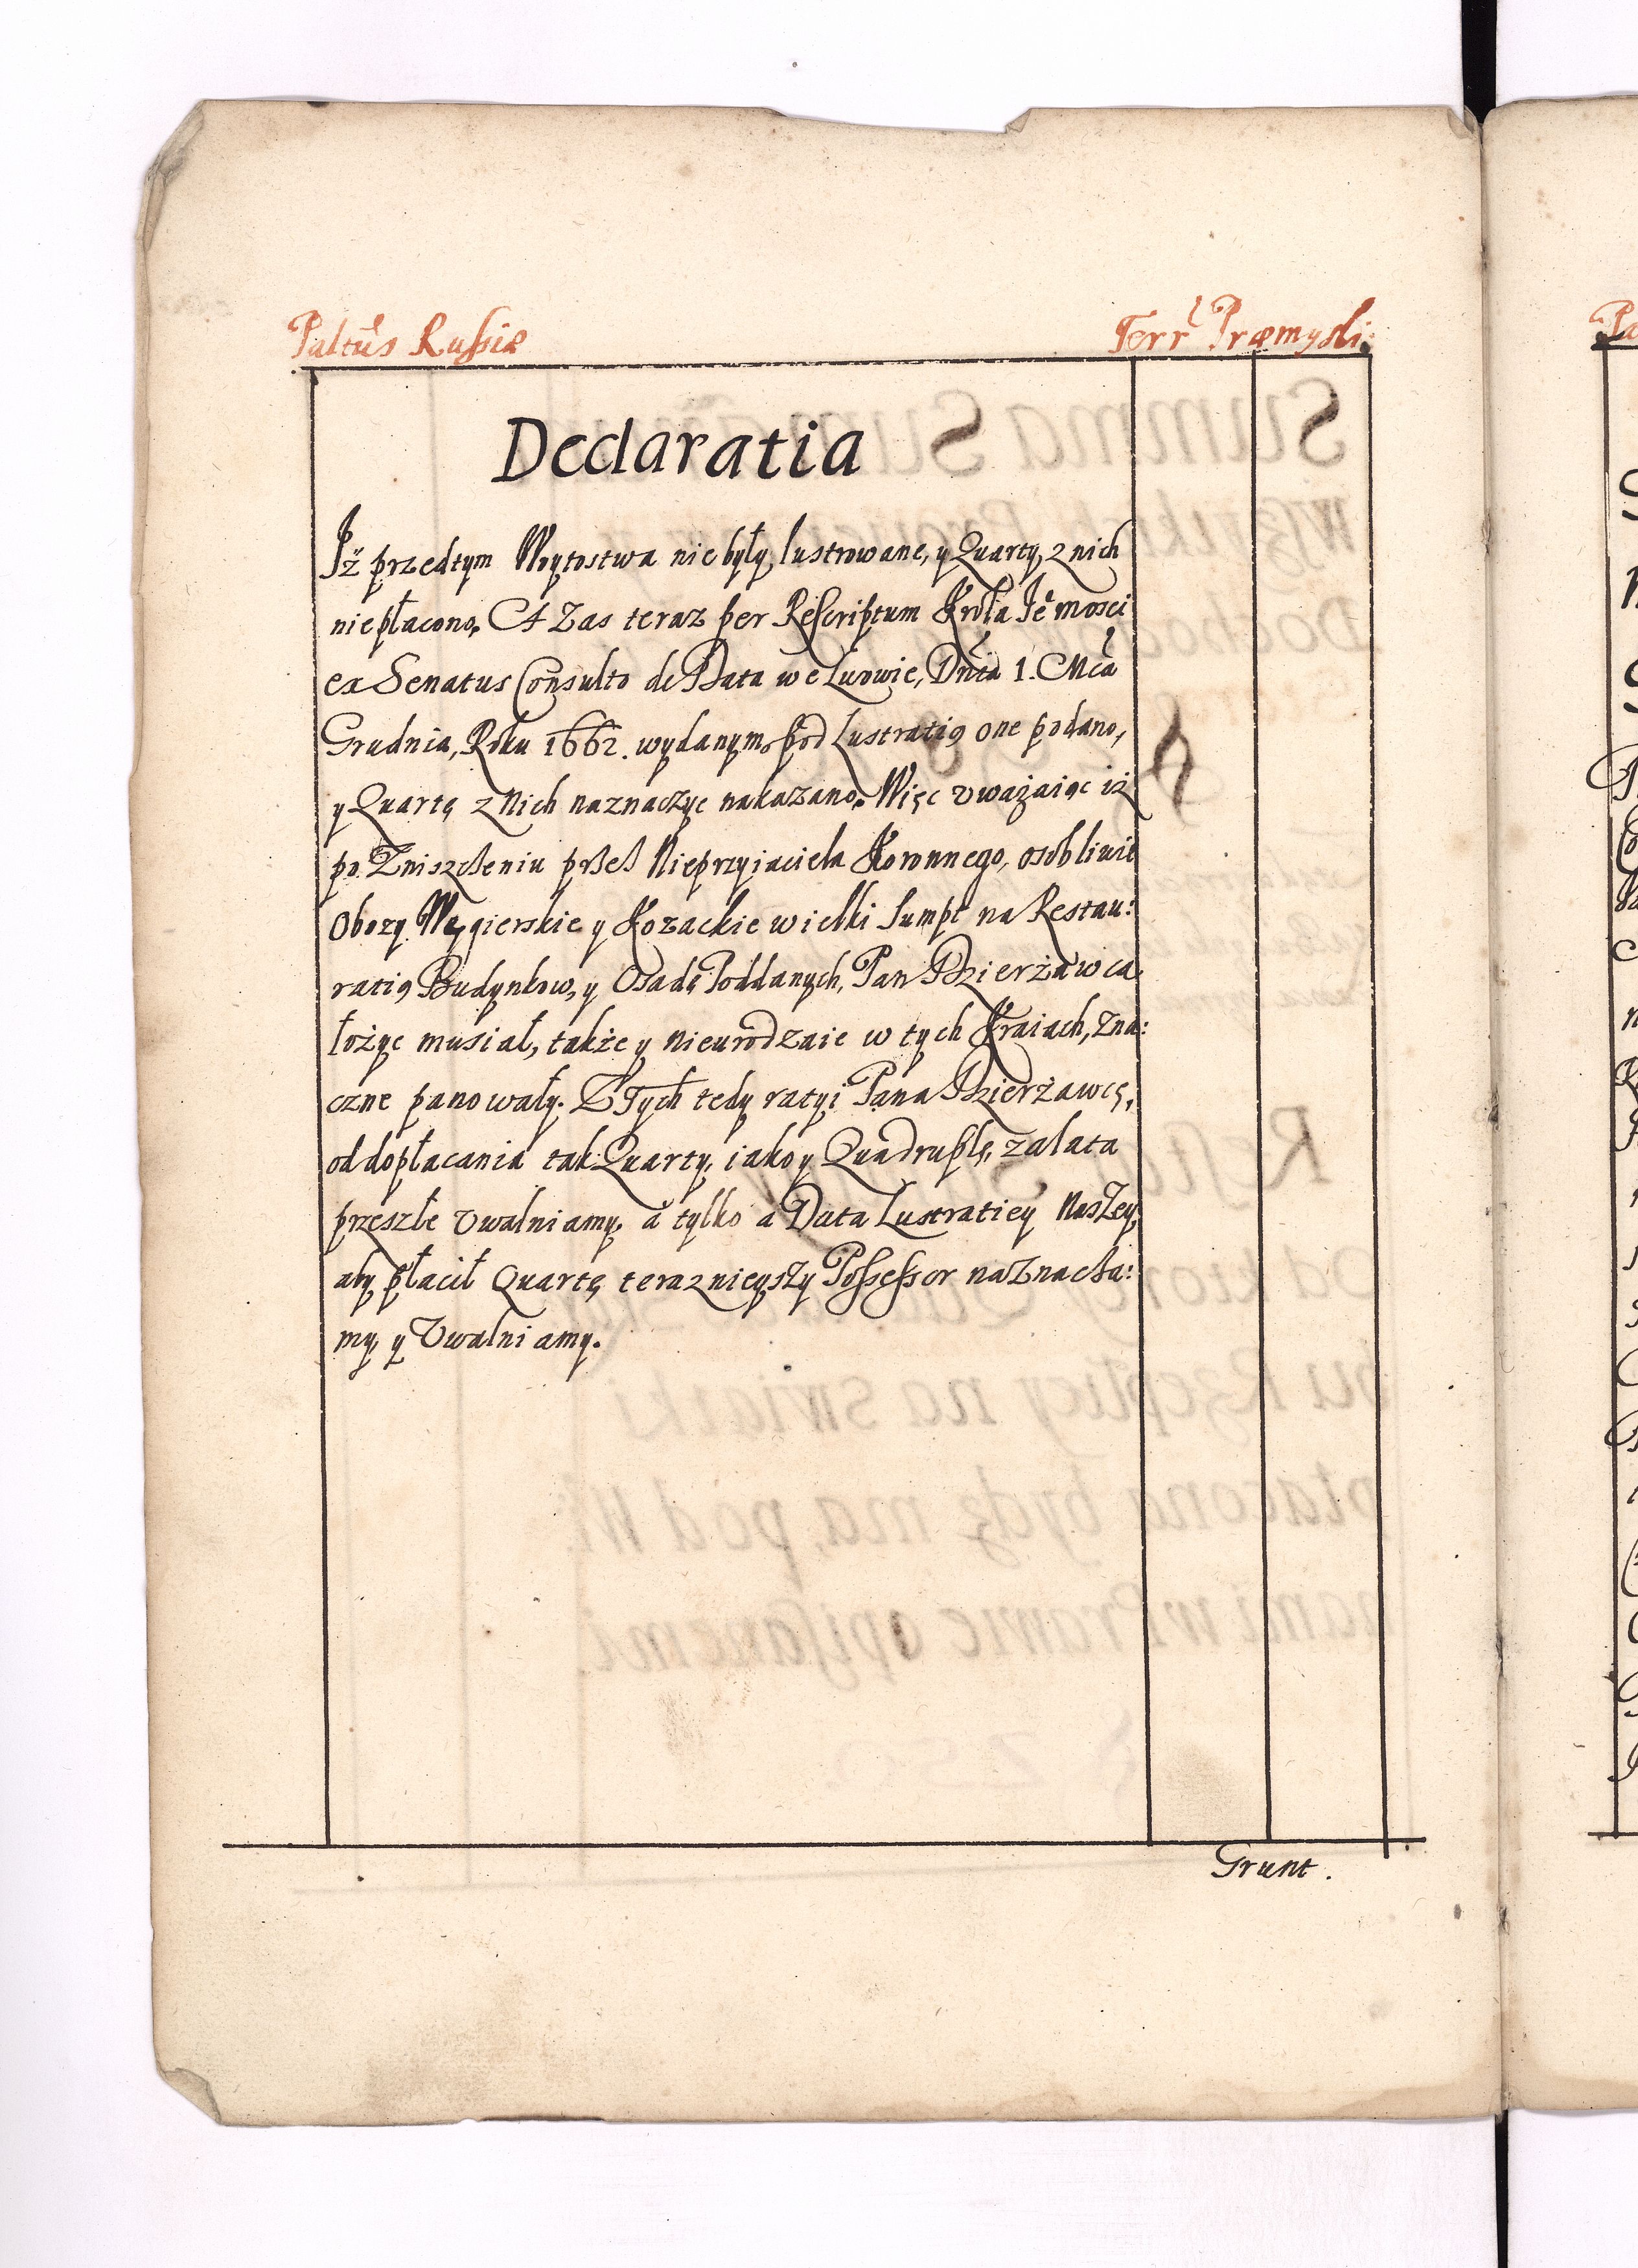 Paltûs Russiæ
Terr Præmysli:
Declaratia
Iż przedtym Woytostwa nie były lustrowane, y Quarty z nich
nie płacono, A Zas teraz per Rescriptum Krola Je mosci
ex Senatus Consulto de Data we Lwowie, Dnia 1. Mca
Grudnia, Roku 1662. wydanym, pod Lustratią one podano,
y Quartę z Nich naznaczyc nakazano. Więc vważaiąc iż
po Zniszczeniu przez Nieprzyiaciela Koronnego, osobliwie
Obozy Węgierskie y Kozackie wielki sumpt na Restau:
ratią Budynkow, y Osadę Poddanych, Pan Dzierżawca
łożyc musiał, także y nieurodzaie w tych Kraiach, zna:
czne panowały. Z Tych tedy ratyi Pana Dzierżawcę,
od dopłacania tak Quarty, iako y Quadruplę, za lata
przeszłe vwalniamy, a tylko a Data Lustratiey Naszey,
aby płacił Quartę teraznieyszy Possessor naznacza:
my, y Vwalniamy.
Grunt.